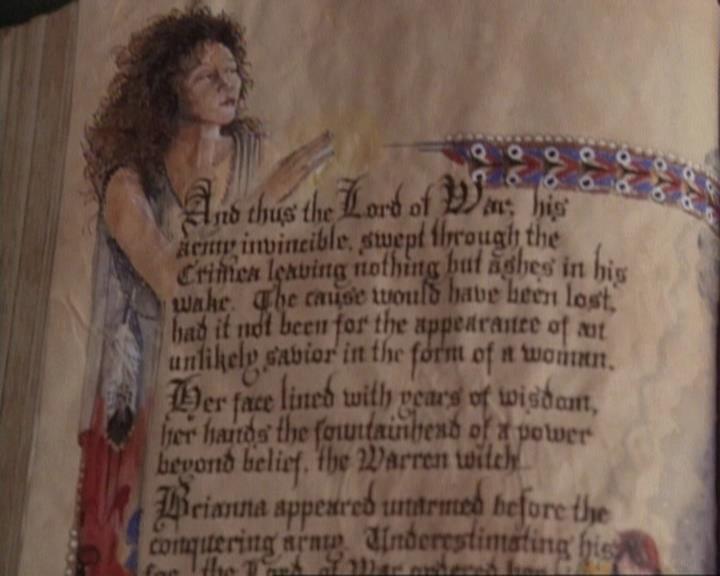 And thus the Lord of War, his
army invincible, swept through the
Crimea leaving nothing but ashes in his
wake. The cause would have been lost,
had it not been for the appearance of an
unlikely savior in the form of a woman.
Her face lined with years of wisdom,
her hands the fountainhead of a power
beyond belief, the Warren witch
Brianna appeared unarmed before the
conquering army. Underestimating his
foe, the Lord of War ordered her